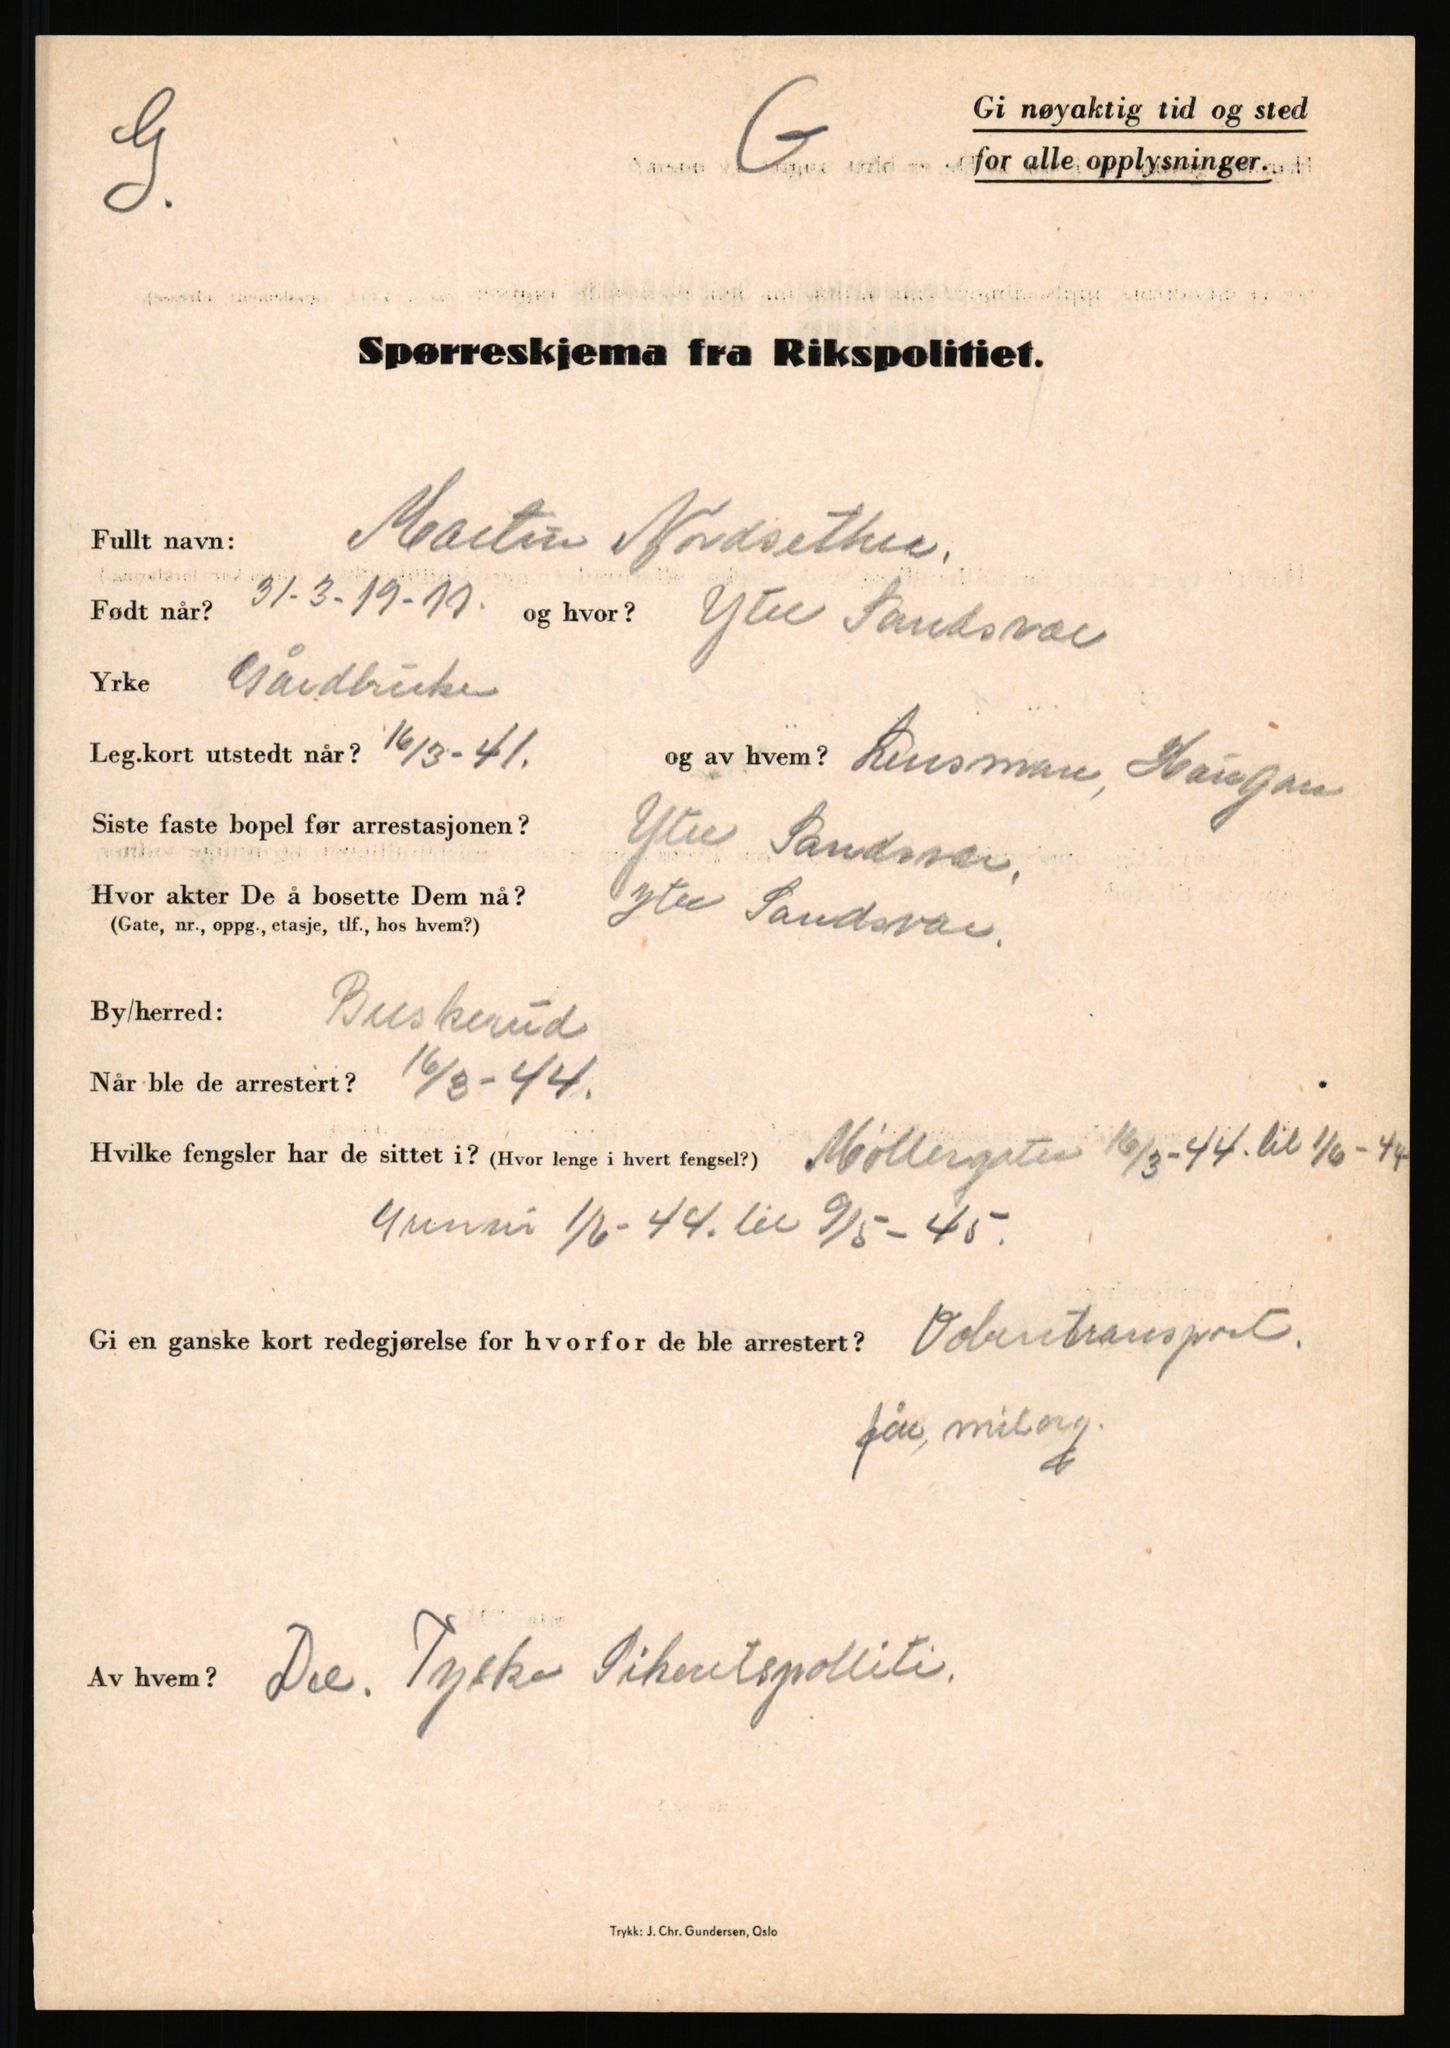 G.
G
Gi nøyaktig tid og sted
for alle opplysninger.
Spørreskjema fra Rikspolitiet.
Fullt navn: Martin Nordsether.
Født når? 31-3-19-11. og hvor? Ytre Sandsvær
Yrke Gårdbruker
Leg.kort utstedt når? 16/3-41. og av hvem? Lensman, Haugan
Siste faste bopel før arrestasjonen? Ytre Sandsvær.
Hvor akter De å bosette Dem nå? ytre Sandsvær.
(Gate, nr., oppg., etasje, tlf., hos hvem?)
By/herred: Buskerud
Når ble de arrestert? 16/3-44.
Hvilke fengsler har de sittet i? (Hvor lenge i hvert fengsel?) Møllergaten 16/3-44. til 1/6-44
Grinni 1/6-44. til 9/5-45.
Gi en ganske kort redegjørelse for hvorfor de ble arrestert? Vobentransport.
for, milorg.
Av hvem? De. Tyske Sikertspolliti.
Trykk: J. Chr. Gundersen, Oslo